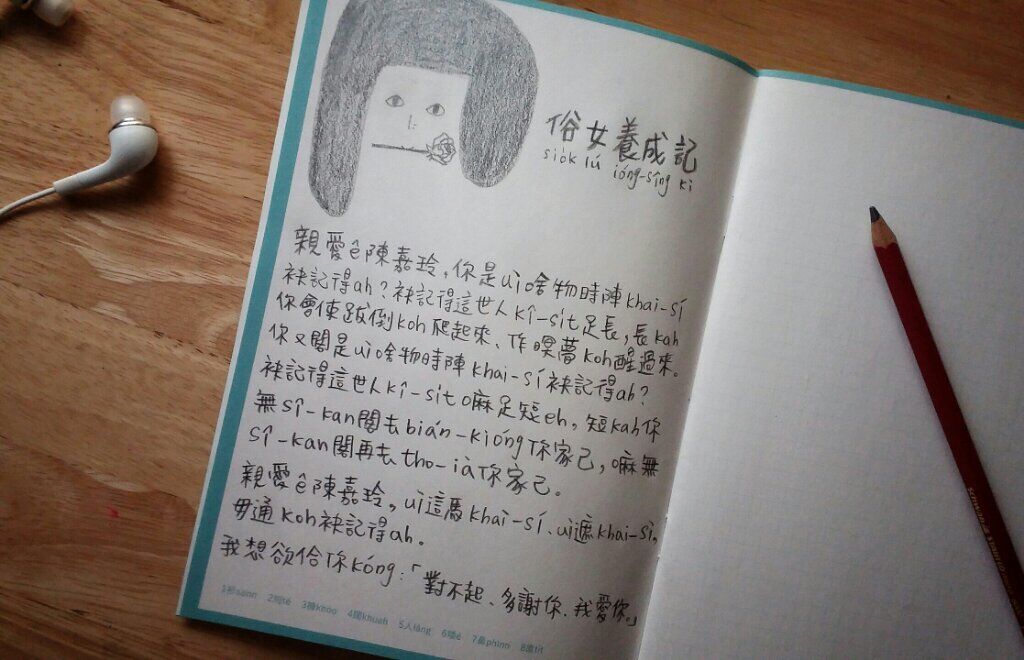 俗女養成記
sio̍k lú ióng-sîng kì
親愛ê陳嘉玲，你是ùi啥物時陣khai-sí
袂記得ah？袂記得這世人kî-si̍t足長，長kah
你會使跋倒koh爬起來、作瞑夢koh醒過來。
你又閣是ùi啥物時陣khai-sí袂記得ah？
袂記得這世人kî-si̍t嘛足短eh，短kah你
無sî-kan閣去bián-kióng你家己，嘛無
sî-kan閣再去thó-ià你家己。
親愛ê陳嘉玲，ùi這馬khai-sí、ùi遮khai-sí，
毋通koh袂記得ah。
我想欲佮你kóng：「對不起、多謝你、我愛你。」